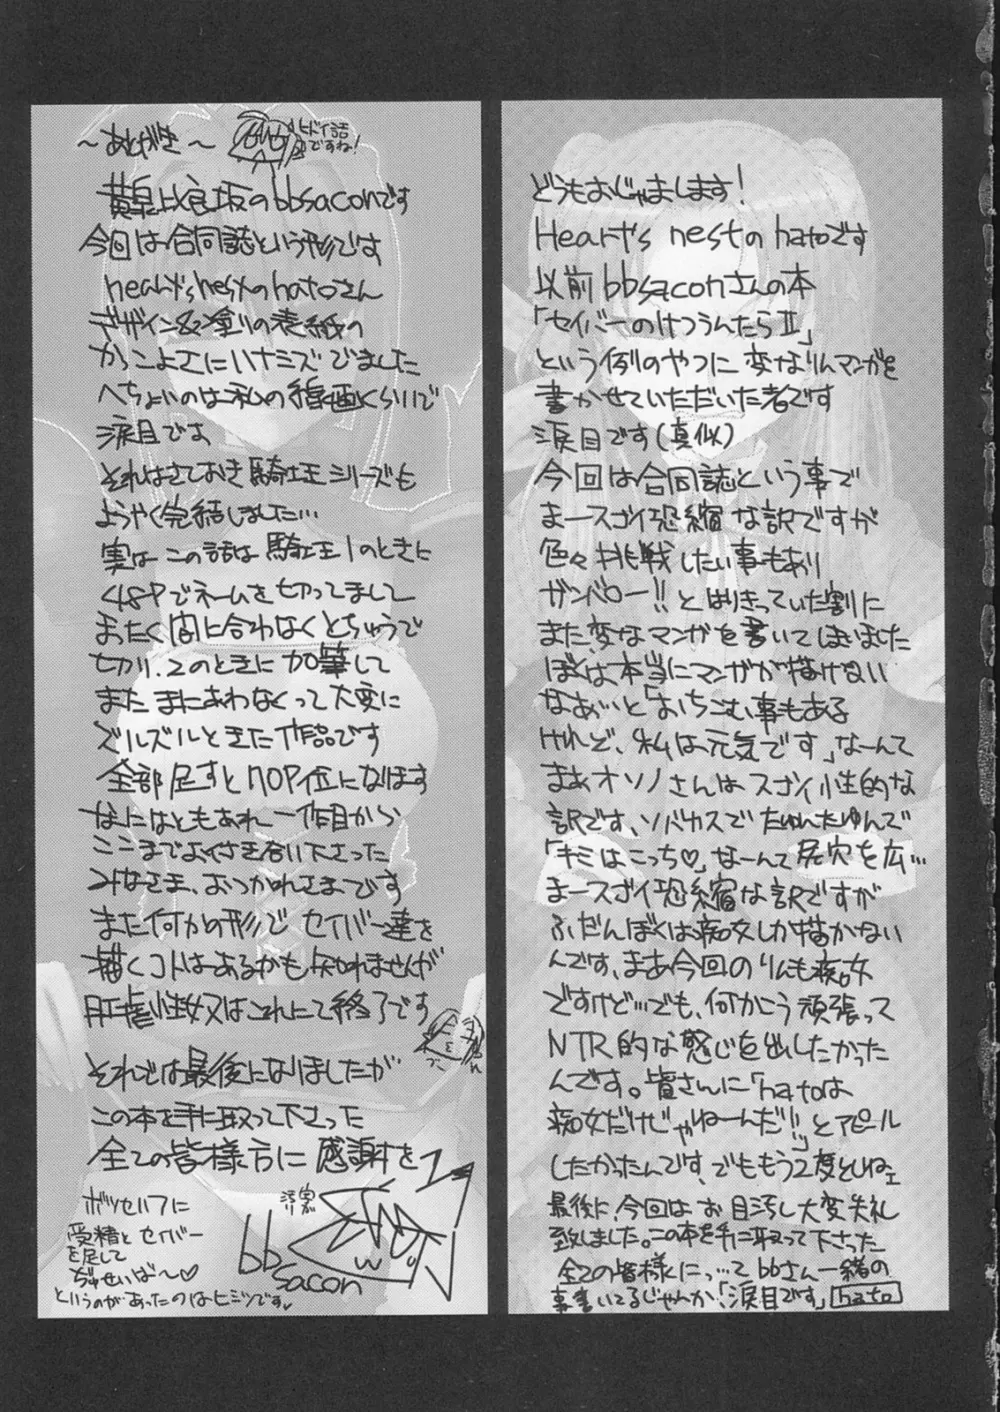 ～あとがき～
ヒドイ話
ですね!
黄泉比良坂のbbsaconです
今回は合同誌という形です
heart'snestのhatoさん
デザイン&塗りの表紙の
かっこよさにハナミズでました
へちょいのは私の線画くらいで
涙目です
それはさておき騎士王シリーズも
ようやく完結しました…
実はこの話は騎士王1のときに
48Pでネームを切ってまして
まったく間に合わなくとちゅうで
切り、2のときに加筆して
またまにあわなくって大変に
ズルズルときた作品です
全部足すと70P位になります
なにはともあれ一作目から
ここまでよくつき合い下さった
みなさま、おつかれさまです
また何かの形でセイバー達を
描くコトはあるかも知れませんが
肛虐性奴はこれにて終了です
それでは最後になりましたが
この本を手に取って下さった
全ての皆様方に感謝を
ボツセルフに
受精とセイバー
を足して
ぢゅせいば～♡
というのがあったのはヒミツです
bb
sacon
どうもおじゃまします!
Heart's nestのhatoです
以前bbsaconさんの本
「セイバーのけつうんたらⅡ」
という例のやつに変なりんマンガを
書かせていただいた者です
涙目です(真似)
今回は合同誌という事で
まースゴイ恐縮な訳ですが
色々挑戦したい事もあり
ガンバロー!!とはりきっていた割に
また変なマンガを書いてしまいました
ぼくは本当にマンガが描けない
なぁいと「おちこむ事もある
けれど、私は元気です」なーんて
まぁオソノさんはスゴイ性的な
訳です、ソバカスでたゆんたゆんで
「キミはこっち♡」なーんて尻穴を広…
まースゴイ恐縮な訳ですが
ふだんぼくは痴女しか描かない
んです、まあ今回のりんも痴女
ですけど…でも、何かこう頑張って
NTR的な感じを出したかった
んです。皆さんに「hatoは
痴女だけじゃねーんだ!!」とアピール
したかったんです、でももう2度としねェ
最後に、今回はお目汚し大変失礼
致しました。この本を手に取って下さった
全ての皆様にっ…てbbさんと一緒の
事書いてるじゃんか、「涙目です」 hato